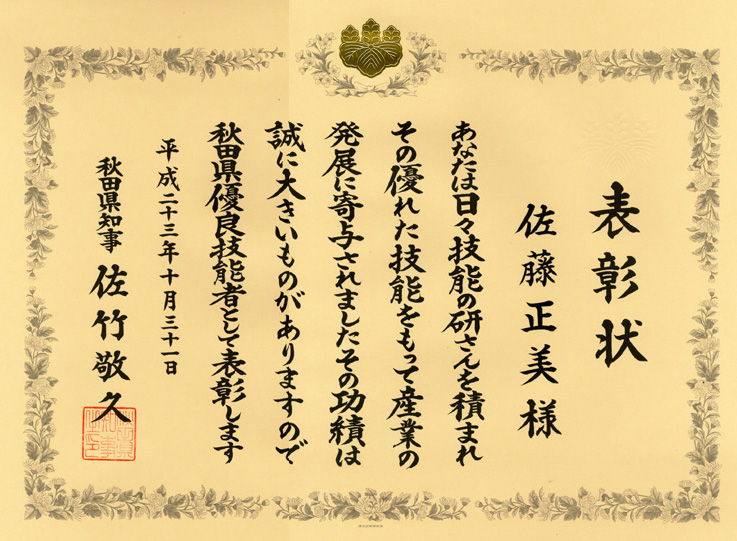 表彰状
佐藤正美様
あなたは日々技能の研さんを積まれ
その優れた技能をもって産業の
発展に寄与されましたその功績は
誠に大きいものがありますので
秋田県優良技能者として表彰します
平成二十三年十月三十一日
秋田県知事 佐竹敬久